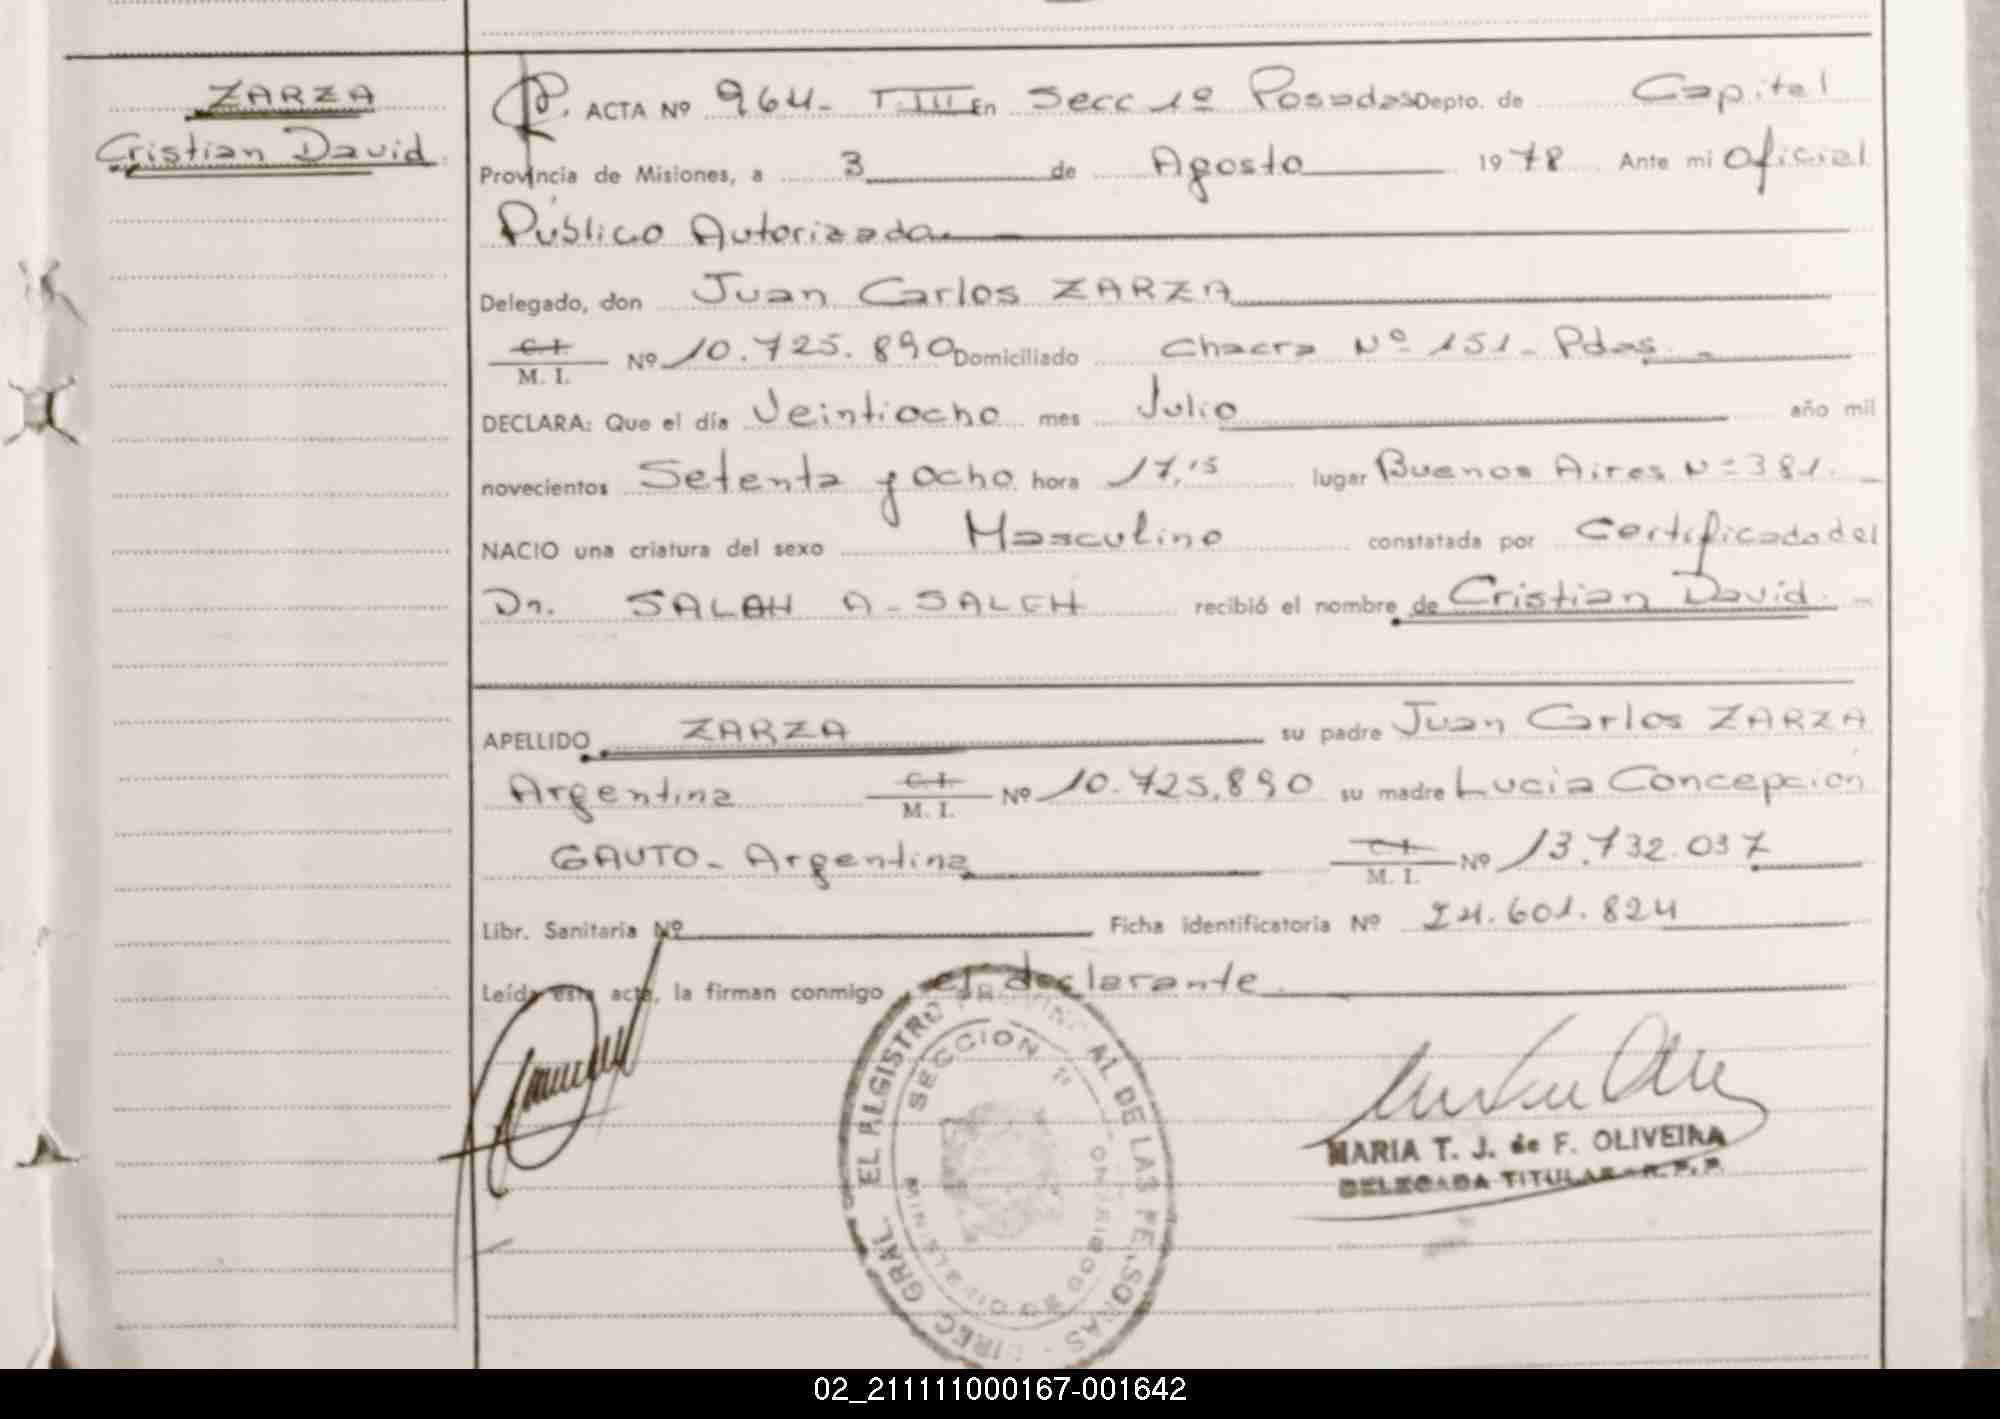 ZARZA
Cristian David
ACTA Nº 964- T III En Secc 1º Posadas Depto. de Capital
Provincia de Misiones, a 3 de Agosto 1978 Ante mi Oficial
Público Autorizada
Delegado, don Juan Carlos ZARZA
C.I. M. I. Nº 10.725.890 Domiciliado Chacra Nº 151- Pdas.
DECLARA: Que el día Veintiocho mes Julio año mil
novecientos Setenta y Ocho hora 17,15 lugar Buenos Aires Nº 381.
NACIO una criatura del sexo Masculino constatada por Certificado del
Dr. SALAH A- SALEH recibió el nombre de Cristian David.
APELLIDO ZARZA su padre Juan Carlos ZARZA
Argentina C.I. M. I. Nº 10.725.890 su madre Lucia Concepción
GAUTO- Argentina C.I. M. I. Nº 13.732.037
Libr. Sanitaria Nº Ficha identificatoria Nº 24.601.824
Leída esta acta, la firman conmigo el declarante.
GRAL. EL REGISTRO PROVINCIAL DE LAS PERSONAS
SECCION 1ª
MARIA T. J. de F. OLIVEIRA
DELEGADA TITULAR R. P. P.
02_211111000167-001642